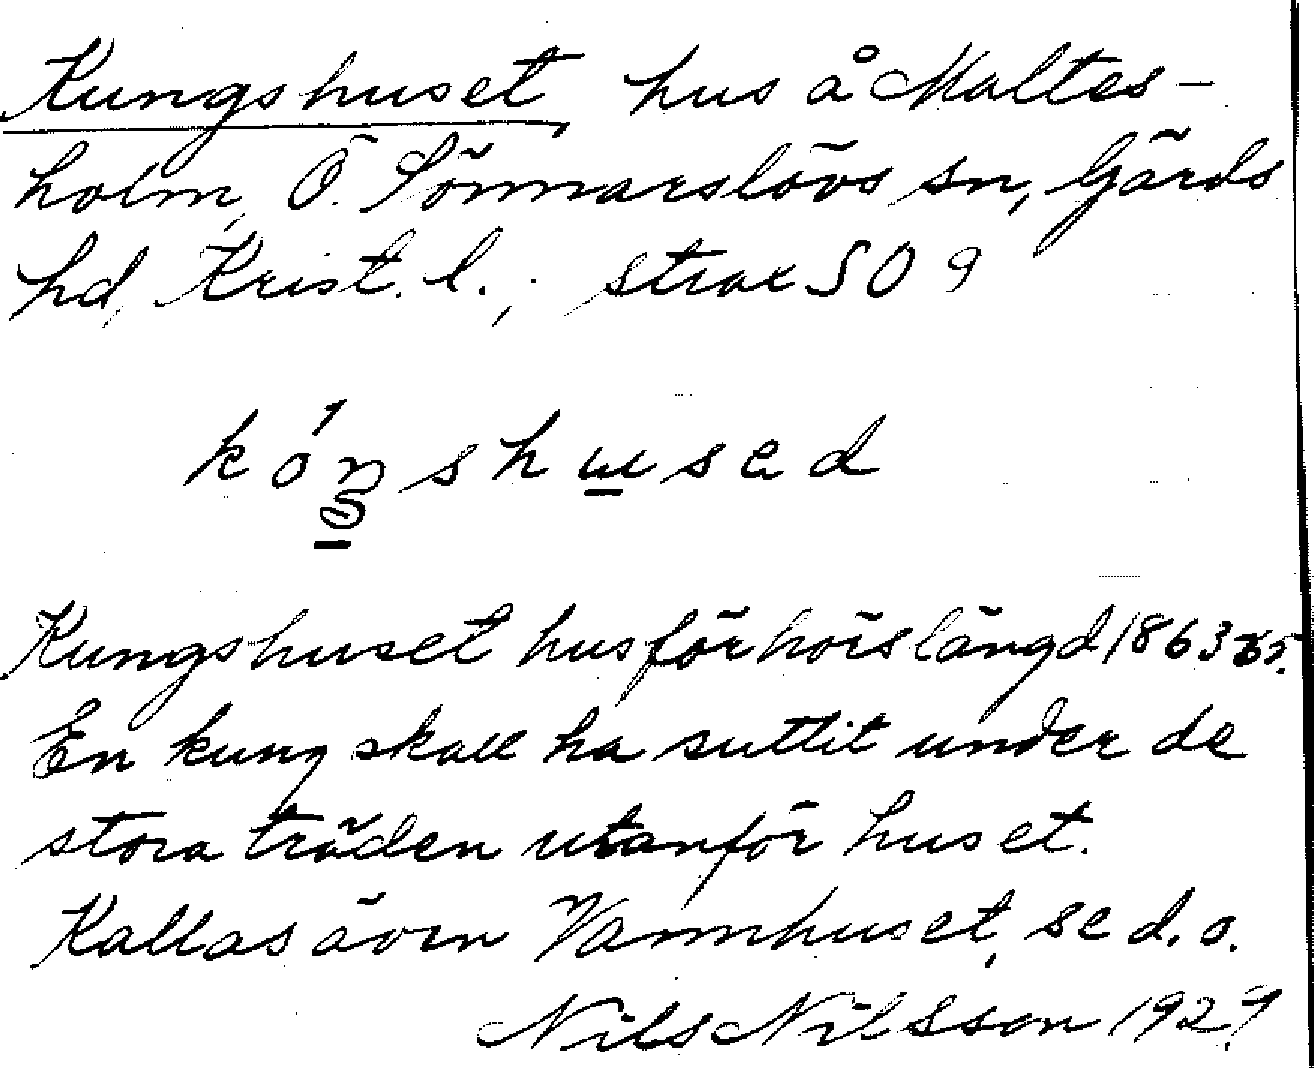 Kungshuset, hus å Maltes-
holm, Ö. Sönnarslövs sn, Gärds
hd, Krist. l.; strax SO 9
kóŋshused
Kungshuset husförhörslängd 1863-65.
En kung skall ha suttit under de
stora träden utanför huset.
Kallas även Vannhuset, se d. o.
Nils Nilsson 1929